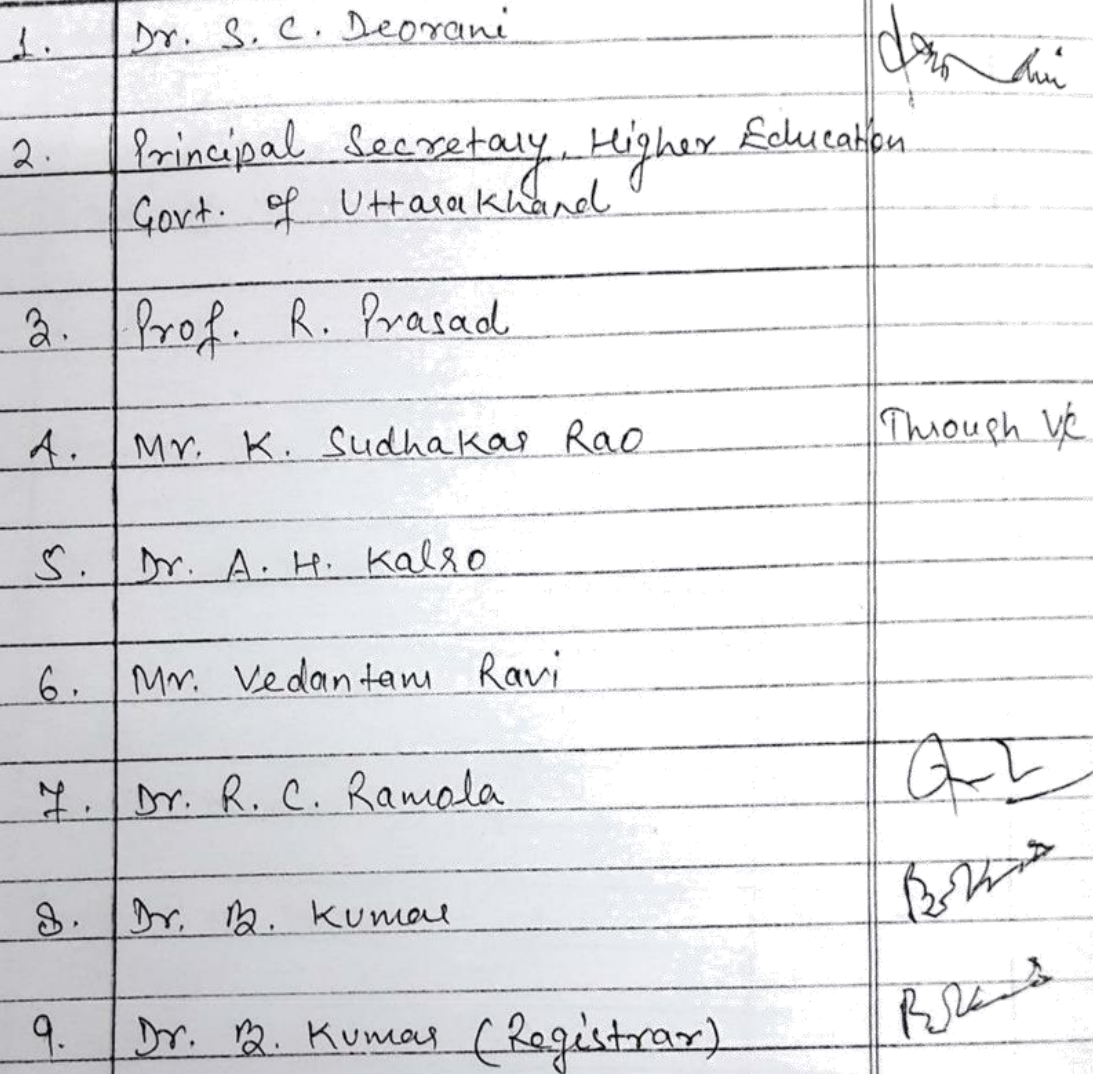 1. Dr. S. C. Deorani
2. Principal Secretary, Higher Education
Govt. of Uttarakhand
3. Prof. R. Prasad
4. Mr. K. Sudhakar Rao Through V/C
5. Dr. A. H. Kalro
6. Mr. Vedantam Ravi
7. Dr. R. C. Ramola
8. Dr. B. Kumar
9. Dr. B. Kumar (Registrar)